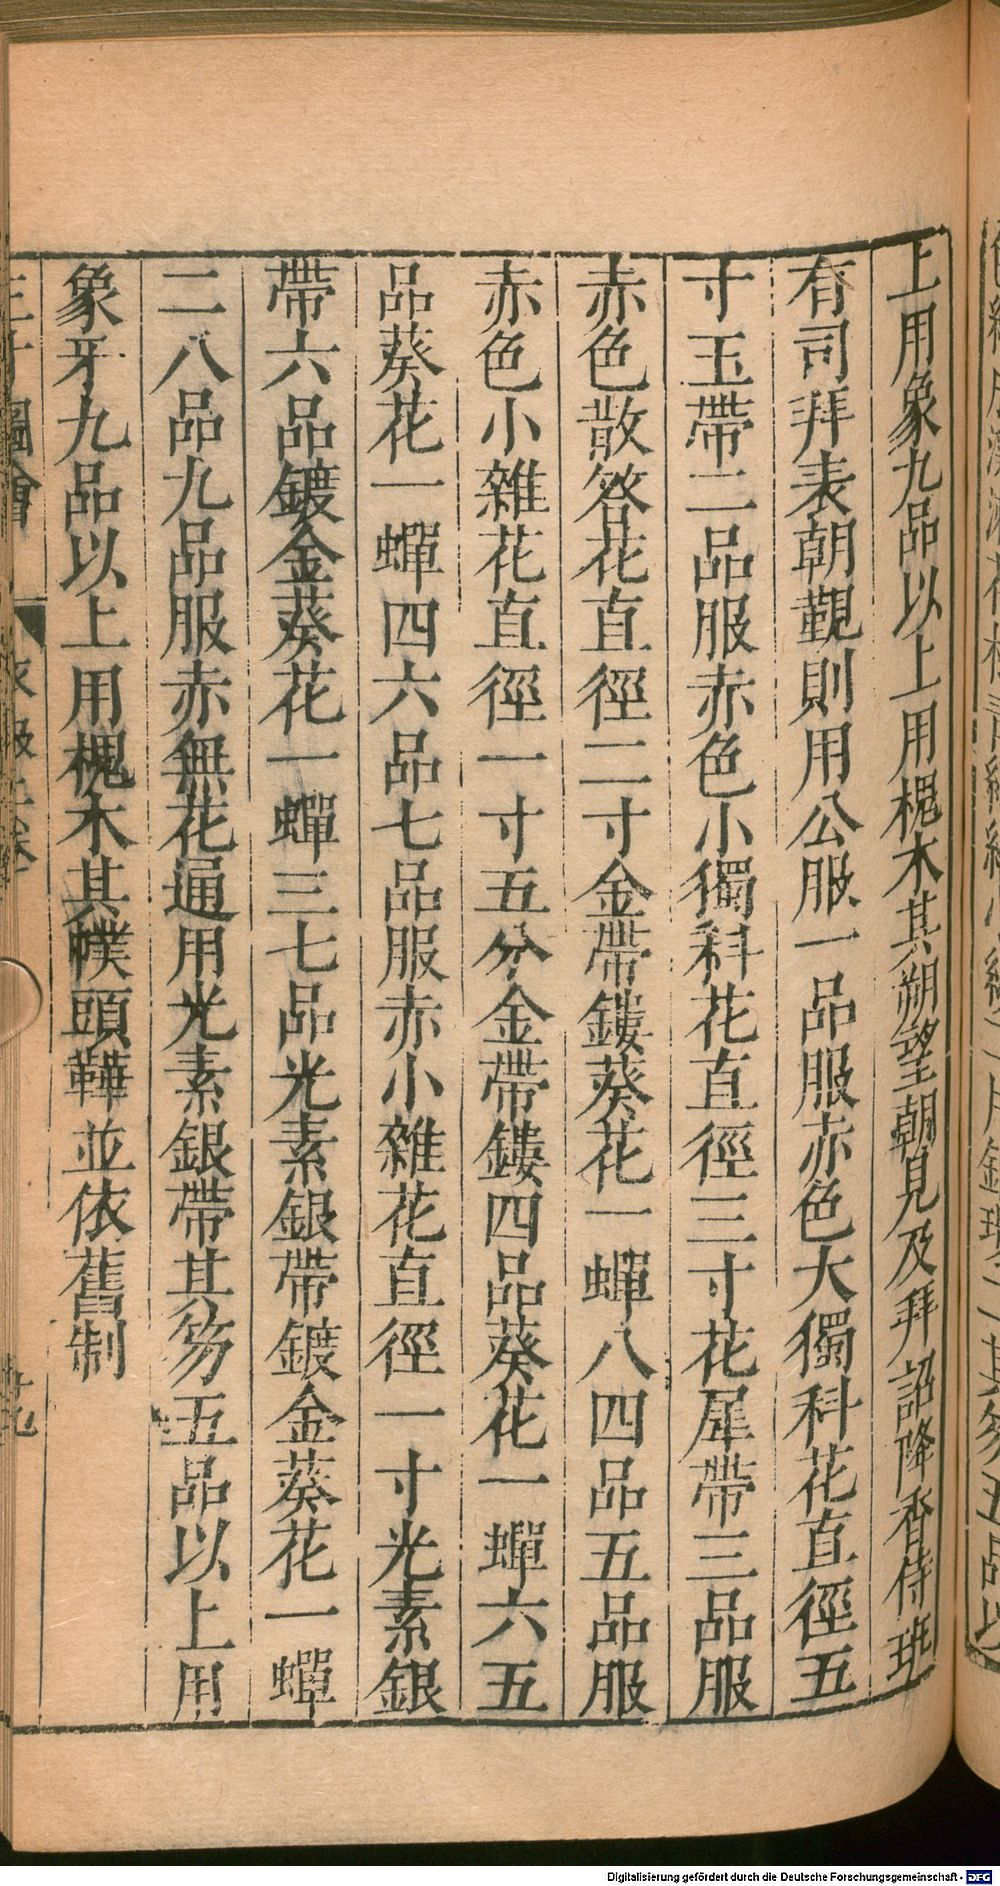 上用象九品以上用槐木其朔望朝見及拜詔降香侍班
有司拜表朝覲則用公服一品服赤色大獨科花直徑五
寸玉帶二品服赤色小獨科花直徑三寸花犀帶三品服
赤色散答花直徑二寸金帶鏤葵花一蟬八四品五品服
赤色小雜花直徑一寸五分金帶鏤四品葵花一蟬六五
品葵花一蟬四六品七品服赤小雜花直徑一寸光素銀
帶六品鍍金葵花一蟬三七品光素銀帶鍍金葵花一蟬
二八品九品服赤無花通用光素銀帶其笏五品以上用
象牙九品以上用槐木其幞頭鞾並依舊制
三才圖會
Digitalisierung gefördert durch die Deutsche Forschungsgemeinschaft - DFG